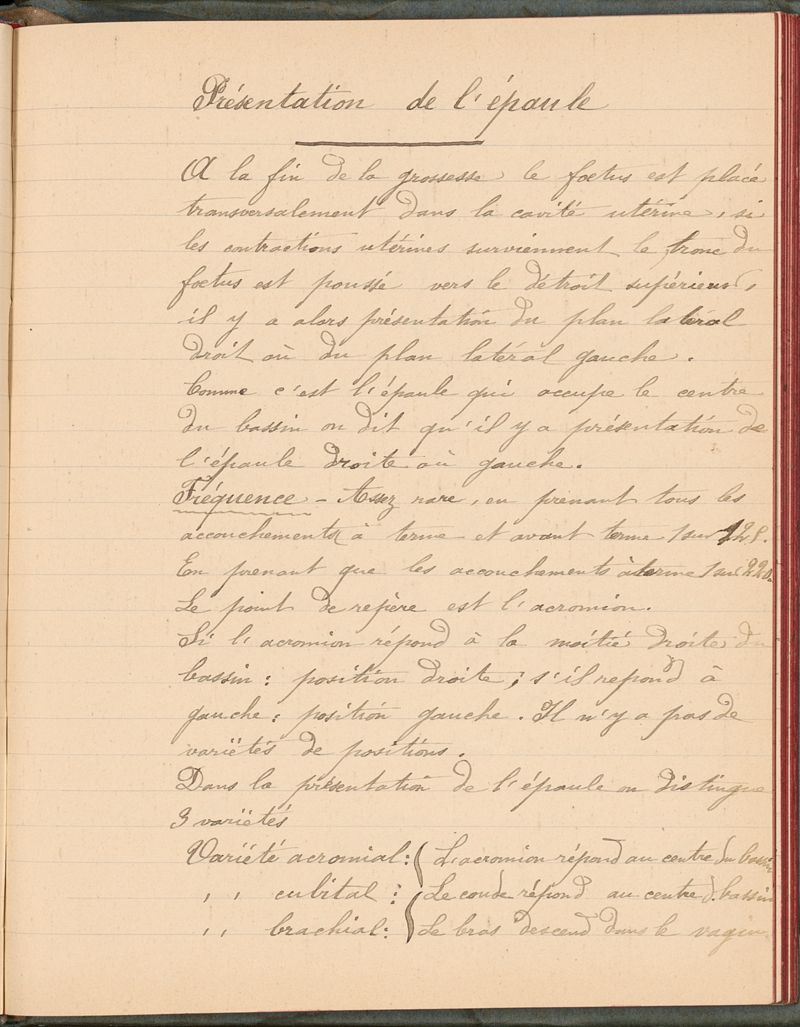 Présentation de l'épaule
A la fin de la grossesse le foetus est placé
transversalement dans la cavité utérine, si
les contractions utérines surviennent le tronc du
foetus est poussé vers le détroit supérieur,
il y a alors présentation du plan latéral
droit où du plan latéral gauche.
Comme c'est l'épaule qui occupe le centre
du bassin on dit qu'il y a présentation de
l'épaule droite où gauche.
Fréquence - Assez rare, en prenant tous les
accouchements à terme et avant terme 1 sur 125.
En prenant que les accouchements à terme 1 sur 220.
Le point de repère est l'acromion.
Si l'acromion répond à la moitié droite du
bassin : position droite ; s'il repond à
gauche : position gauche. Il n'y a pas de
variétés de positions.
Dans la présentation de l'épaule on distingue
3 variétés
Variété acromial : { L'acromion répond au centre du bassin
, , cubital : { Le coude répond au centre d. bassin
, , brachial : { Le bras descend dans le vagin